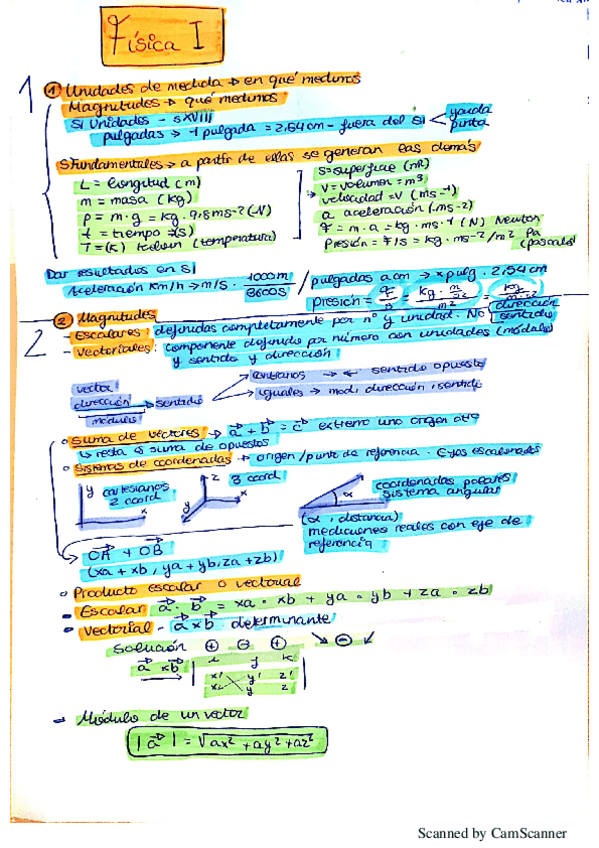 Física I
1
① Unidades de medida → en qué medimos
Magnitudes → qué medimos
SI Unidades - sXVIII
pulgadas → 1 pulgada = 2,54 cm - fuera del SI < yarda
pinta
Fundamentales → a partir de ellas se generan las demás
L = longitud (m)
m = masa (kg)
p = m · g = kg · 9,8 ms-2 (N)
t = tiempo = (s)
T = (K) kelvin (temperatura)
S = superficie (m2)
V = volumen = m3
velocidad = V (ms-1)
a aceleración (ms-2)
F = m · a = kg · ms-1 (N) Newton
Presión = F/S = kg · ms-2/m2 Pa
(pascales)
Dar resultados en SI
Aceleración km/h → m/s · 1000m / 3600s / pulgadas a cm → x pulg · 2,54 cm
presión =
2
② Magnitudes
- Escalares: definidas completamente por nº y unidad. No dirección
sentido
- Vectoriales: componente definido por número con unidades (módulo)
y sentido y dirección
vector
dirección → sentido
módulo
contrarios → ← sentido opuesto
iguales → mod, dirección, sentido
o Suma de vectores → a + b = c extremo uno origen otro
↳ resta es suma de opuestos
o Sistemas de coordenadas → origen/punto de referencia. Ejes escalonados
y cartesianas
2 coord.
x
z 3 coord
y x
α
coordenadas polares
sistema angular
(α, distancia)
mediciones reales con eje de
referencia
OA + OB
(xa + xb, ya + yb, za + zb)
o Producto escalar o vectorial
- Escalar a · b = xa · xb + ya · yb + za · zb
- Vectorial - a x b determinante
Solución ⊕ ⊖ ⊕ ↘ ⊖ ↙
a x b
y z
- Módulo de un vector
|a| = √ax² + ay² + az²
Scanned by CamScanner